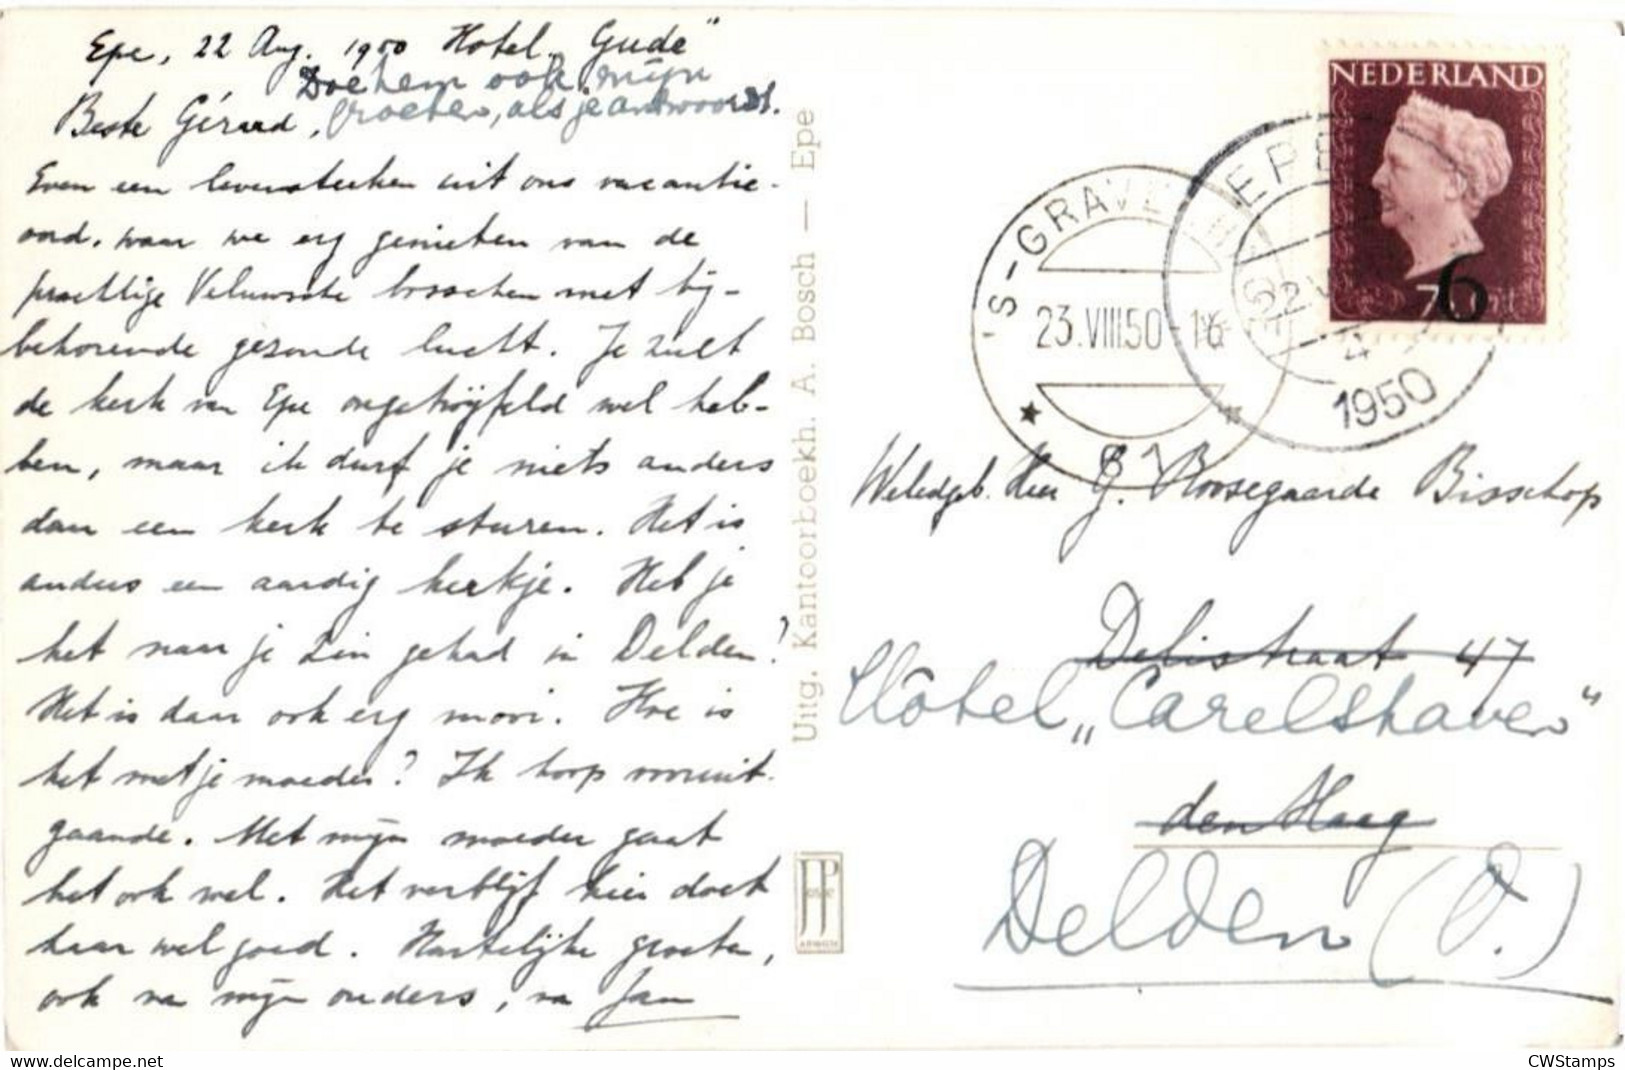 Epe, 22 Aug. 1950 Hotel „Gude"
Doe hem ook mijn
Beste Gérard, groeten, als je antwoordt.
Even een levensteeken uit ons vacantie-
oord, waar we erg genieten van de
prachtige Veluwsche bosschen met bij-
behorende gezonde lucht. Je zult
de kerk van Epe ongetwijfeld wel heb-
ben, maar ik durf je niets anders
dan een kerk te sturen. Het is
anders een aardig kerkje. Heb je
het naar je zin gehad in Delden?
Het is daar ook erg mooi. Hoe is
het met je moeder? Ik hoop vooruit-
gaande. Met mijn moeder gaat
het ook wel. Het verblijf hier doet
haar wel goed. Hartelijke groeten,
ook van mijn ouders, van Jan
Uitg. Kantoorboekh. A. Bosch — Epe
JP
NEDERLAND
6
7½
EPE
1950
'S-GRAVENHAGE
23.VIII50-16
Weledgeb. Heer G. Roosegaarde Bisschop
Delistraat 47
Hôtel „Carelshaven"
den Haag
Delden (O.)
www.delcampe.net
CWStamps